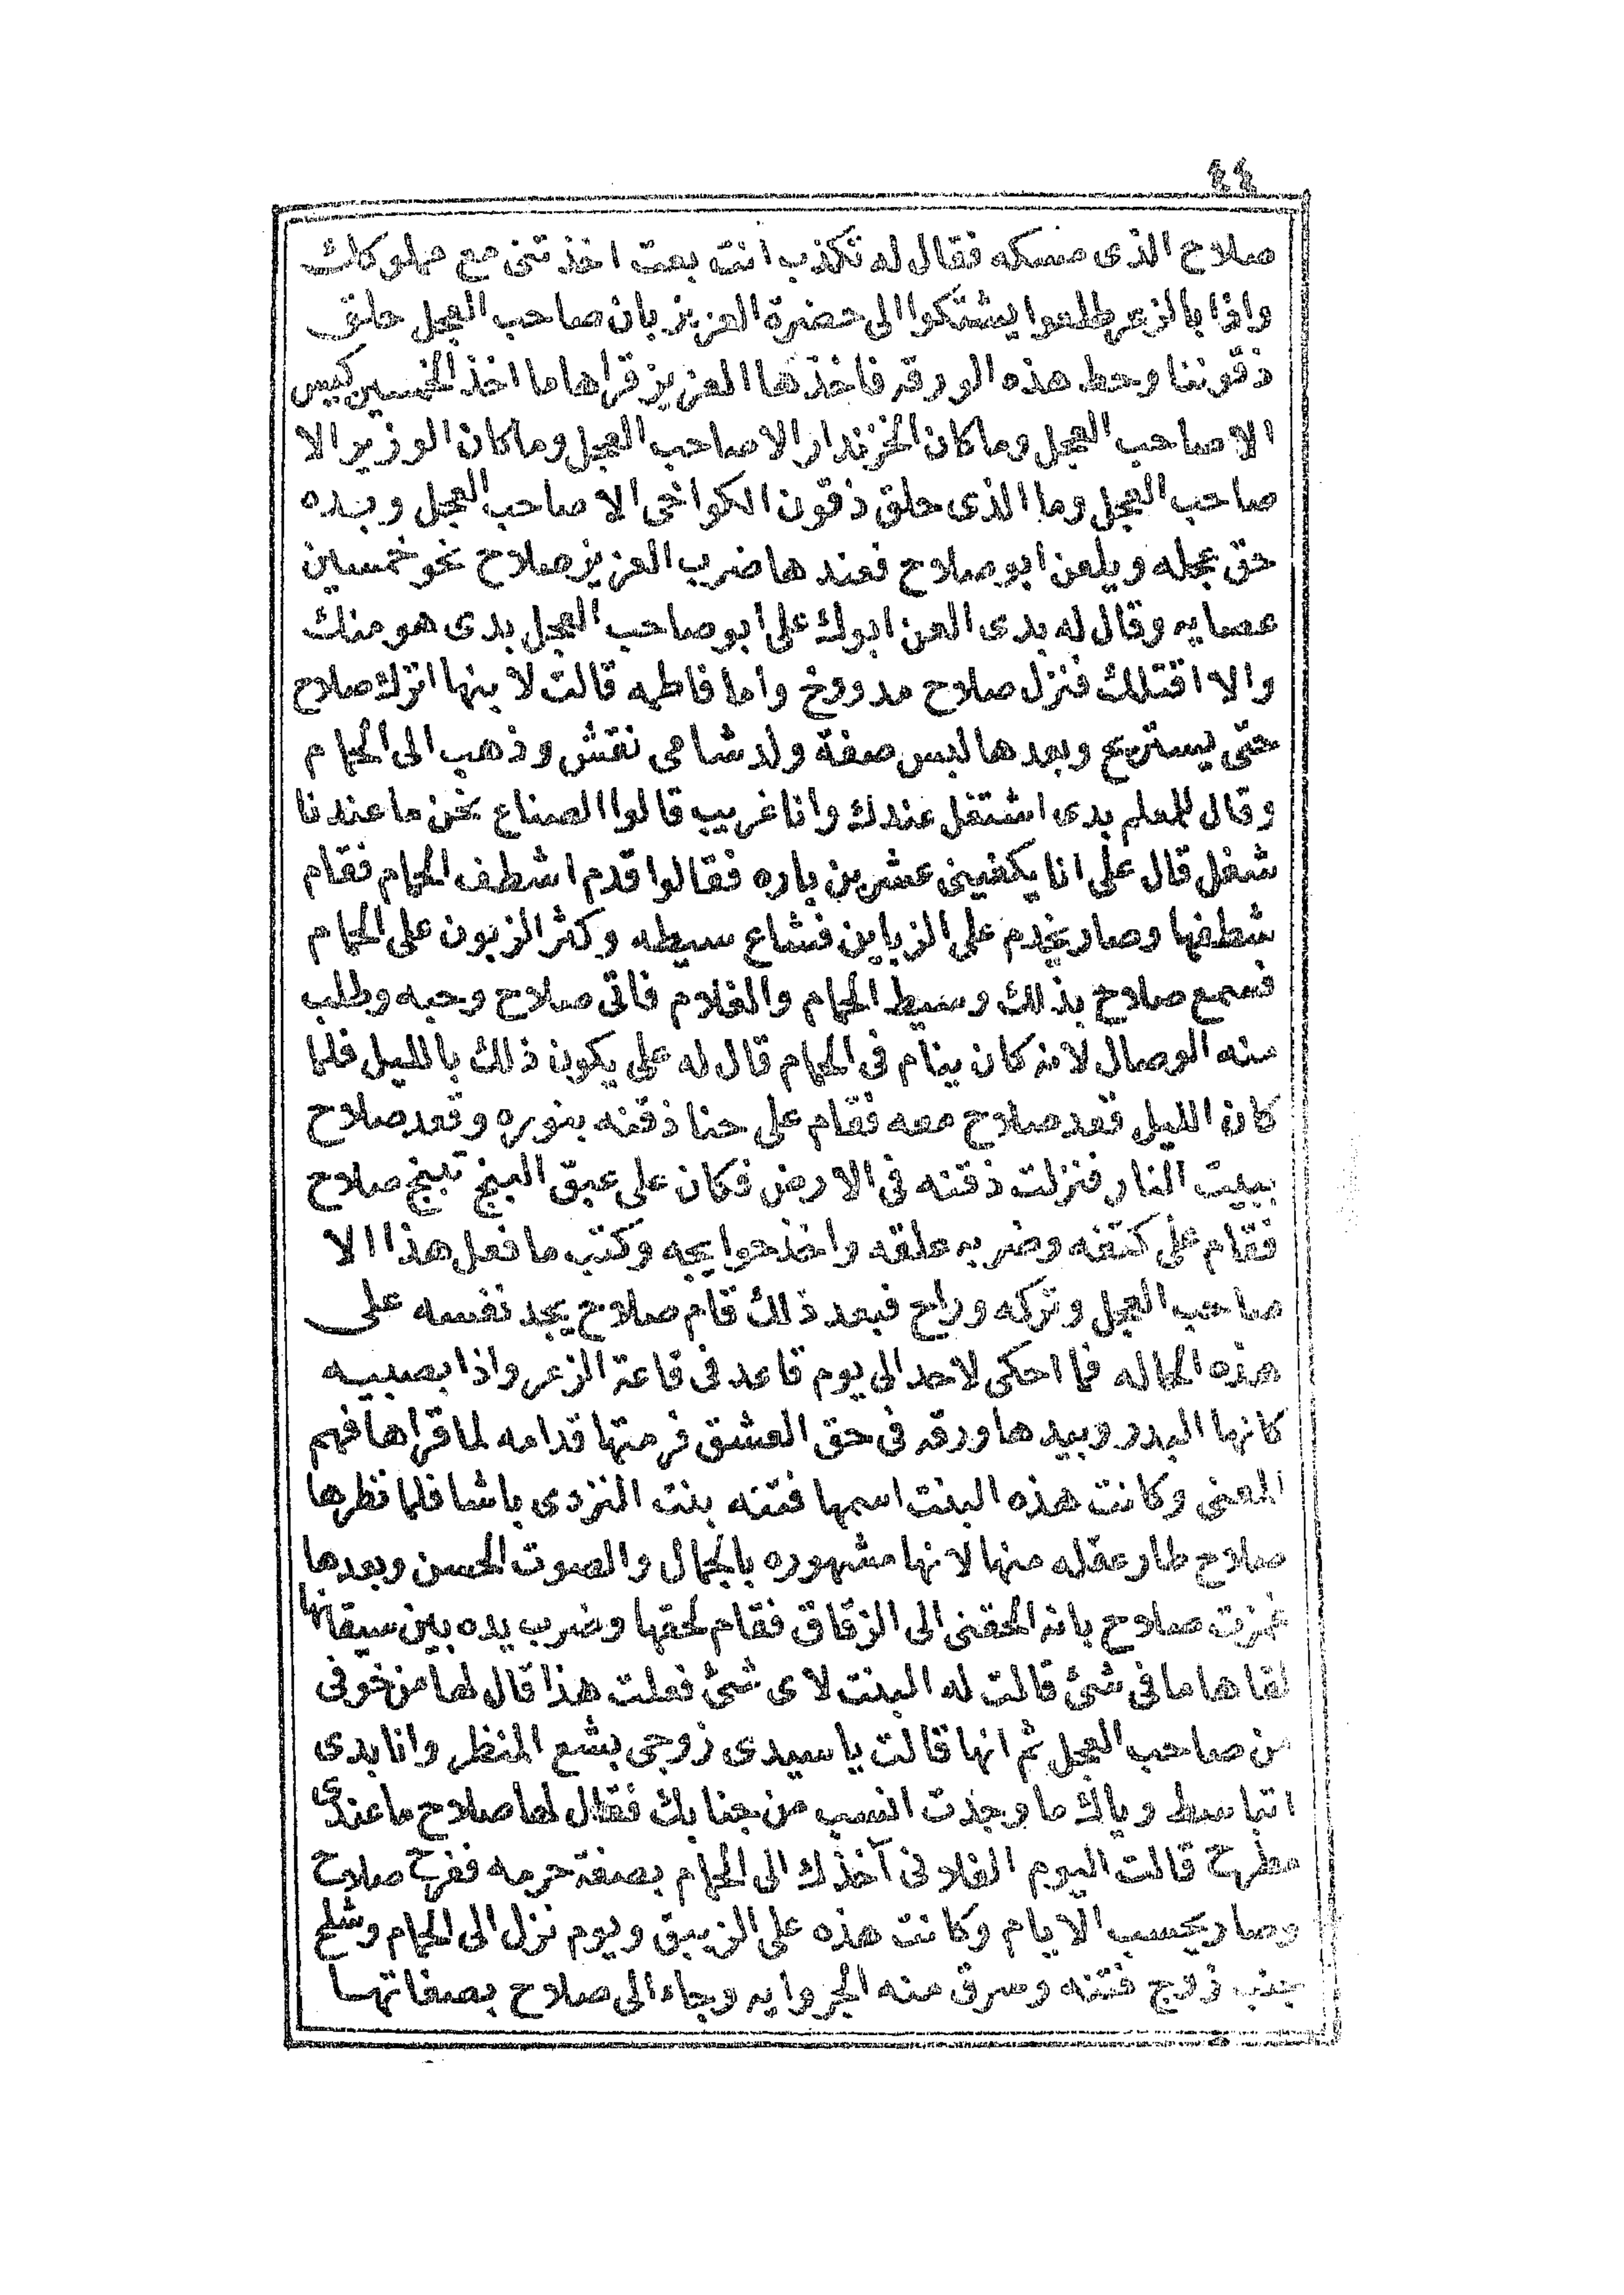 ٤٤
صلاح الذى مسكه فقال له تكذب انته بعت اخذتنى مع مملوكك
واذا بالزعر طلعوا يشتكوا الى حضرة العزيز بان صاحب العجل حلق
ذقوننا وحط هذه الورقه فاخذها العزيز قراها ما اخذ الخمسين كيس
الا صاحب العجل وما كان الخزندار الا صاحب العجل وما كان الوزير الا
صاحب العجل وما الذى حلق ذقون الكواخى الا صاحب العجل وبده
حق عجله ويلعن ابو صلاح فعندها ضرب العزيز صلاح نحو خمسين
عصايه وقال له بدى العن ابوك على ابو صاحب العجل بدى هو منك
والا اقتلك فنزل صلاح مدووخ واما فاطمه قالت لابنها اترك صلاح
حتى يستريح وبعدها لبس صفة ولد شامى نقش وذهب الى الحمام
وقال للمعلم بدى اشتغل عندك وانا غريب قالوا الصناع نحن ما عندنا
شغل قال على انا يكفينى عشرين باره فقالوا قدم اشطف الحمام فقام
شطفها وصار يخدم على الزباين فشاع سيطه وكثر الزبون على الحمام
فسمع صلاح بذلك وسيط الحمام والغلام فاتى صلاح وحبه وطلب
منه الوصال لانه كان ينام فى الحمام قال له على يكون ذلك بالليل فلما
كان الليل قعد صلاح معه فقام على حنا ذقنه بنوره وقعد صلاح
ببيت النار فنزلت ذقنه فى الارض فكان على عبق البنج تبنج صلاح
فقام على كتفه وضربه علقه واخذ حوايجه وكتب ما فعل هذا الا
صاحب العجل وتركه وراح فبعد ذلك قام صلاح يجد نفسه على
هذه الحاله فما احكى لاحد الى يوم قاعد فى قاعة الزعر واذا بصبيه
كانها البدر وبيدها ورقه فى حق العشق فرمتها قدامه لما قراها فهم
المعنى وكانت هذه البنت اسمها فتنه بنت النزدى باشا فلما نظرها
صلاح طار عقله منها لانها مشهوره بالجمال والصوت الحسن وبعدها
غمزت صلاح بانه الحقنى الى الزقاق فقام لحقها وضرب يده بين سيقانها
لقاها ما فى شئ قالت له البنت لاى شئ فعلت هذا قال لها من خوفى
من صاحب العجل ثم انها قالت يا سيدى زوجى بشع المنظر وانا بدى
اتباسط وياك ما وجذت انسب من جنابك فقال لها صلاح ما عندى
مطرح قالت اليوم الفلانى آخذك الى الحمام بصفة حرمه ففرح صلاح
وصار يحسب الايام وكانت هذه على الزيبق ويوم نزل الى الحمام وشلح
جنب زوج فتنه وسرق منه الجروايه وجاء الى صلاح بصفاتها